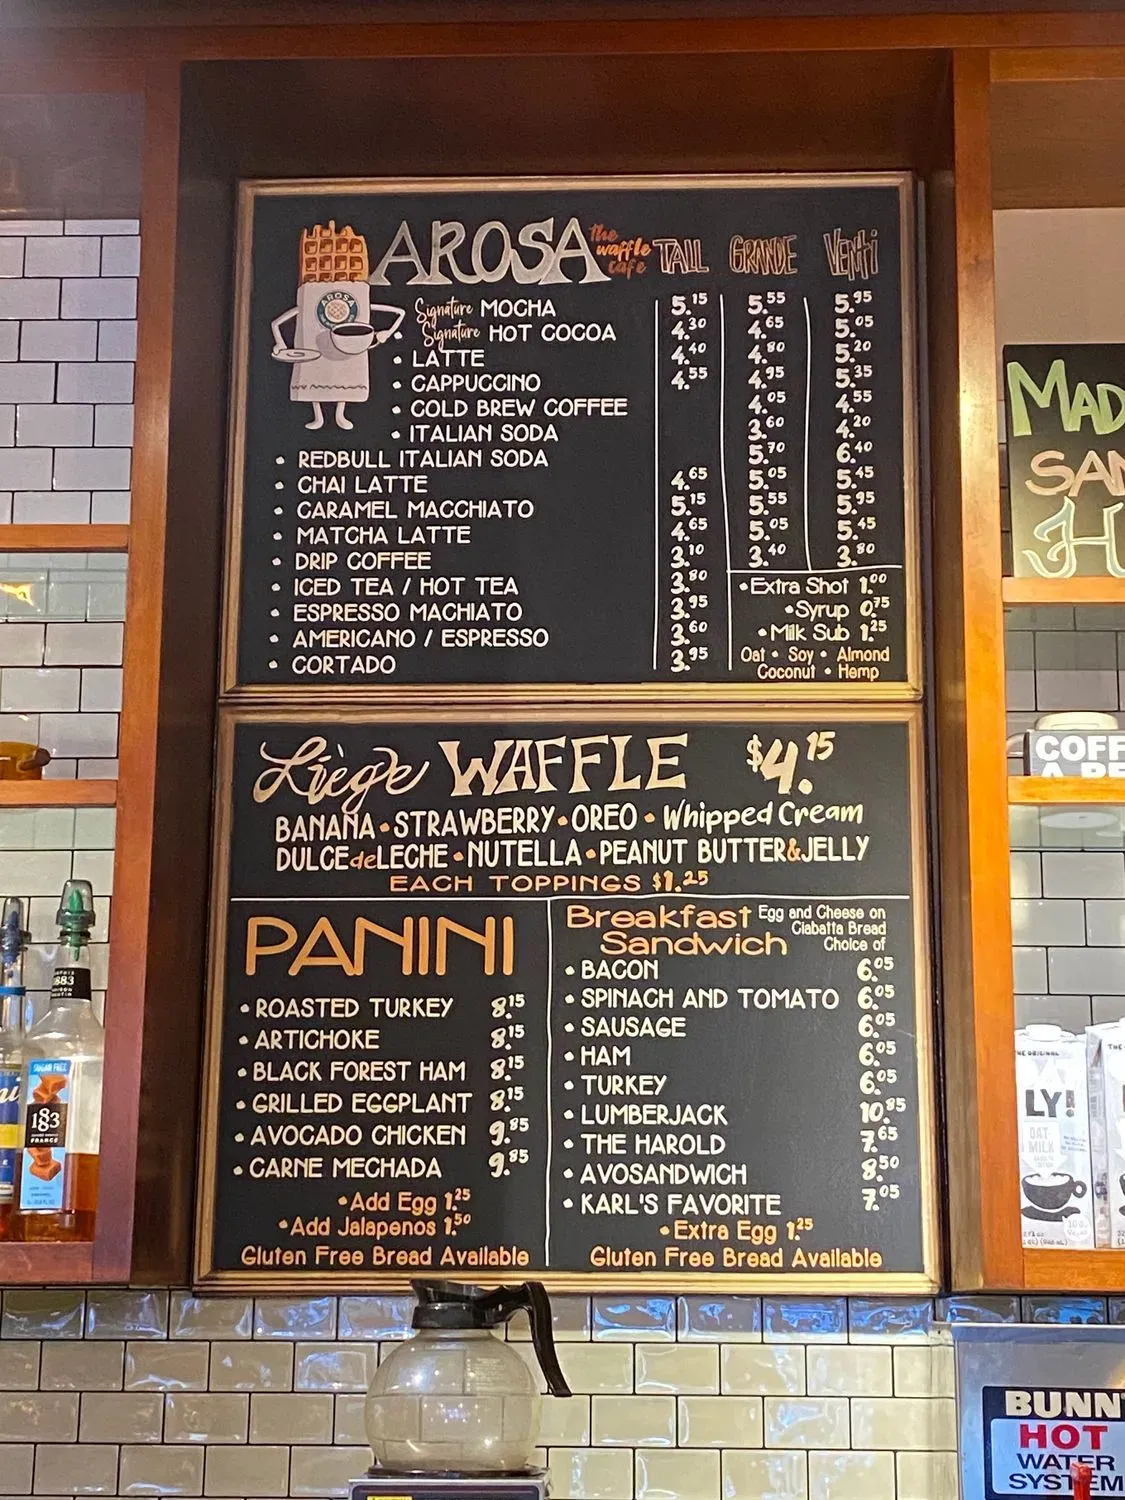 AROSA the waffle cafe TALL GRANDE VENTI
Signature MOCHA 5.15 5.55 5.95
Signature HOT COCOA 4.30 4.65 5.05
• LATTE 4.40 4.80 5.20
• CAPPUCCINO 4.55 4.95 5.35
• COLD BREW COFFEE 4.05 4.55
• ITALIAN SODA 3.60 4.20
• REDBULL ITALIAN SODA 5.70 6.40
• CHAI LATTE 4.65 5.05 5.45
• CARAMEL MACCHIATO 5.15 5.55 5.95
• MATCHA LATTE 4.65 5.05 5.45
• DRIP COFFEE 3.10 3.40 3.80
• ICED TEA / HOT TEA 3.80
• ESPRESSO MACHIATO 3.95
• AMERICANO / ESPRESSO 3.60
• CORTADO 3.95
• Extra Shot 1.00
• Syrup 0.75
• Milk Sub 1.25
Oat • Soy • Almond
Coconut • Hemp
AROSA
Liège WAFFLE $4.15
BANANA • STRAWBERRY • OREO • Whipped Cream
DULCE de LECHE • NUTELLA • PEANUT BUTTER & JELLY
EACH TOPPINGS $1.25
PANINI
• ROASTED TURKEY 8.15
• ARTICHOKE 8.15
• BLACK FOREST HAM 8.15
• GRILLED EGGPLANT 8.15
• AVOCADO CHICKEN 9.85
• CARNE MECHADA 9.85
• Add Egg 1.25
• Add Jalapenos 1.50
Gluten Free Bread Available
Breakfast Sandwich
Egg and Cheese on
Ciabatta Bread
Choice of
• BACON 6.05
• SPINACH AND TOMATO 6.05
• SAUSAGE 6.05
• HAM 6.05
• TURKEY 6.05
• LUMBERJACK 10.85
• THE HAROLD 7.65
• AVOSANDWICH 8.50
• KARL'S FAVORITE 7.05
• Extra Egg 1.25
Gluten Free Bread Available
MAD
SAN
H
COFF
A BE
THE ORIGINAL
LY!
OAT-
MILK
1883
SUGAR FREE
183
FRANCE
BUNN
HOT
WATER
SYSTEM